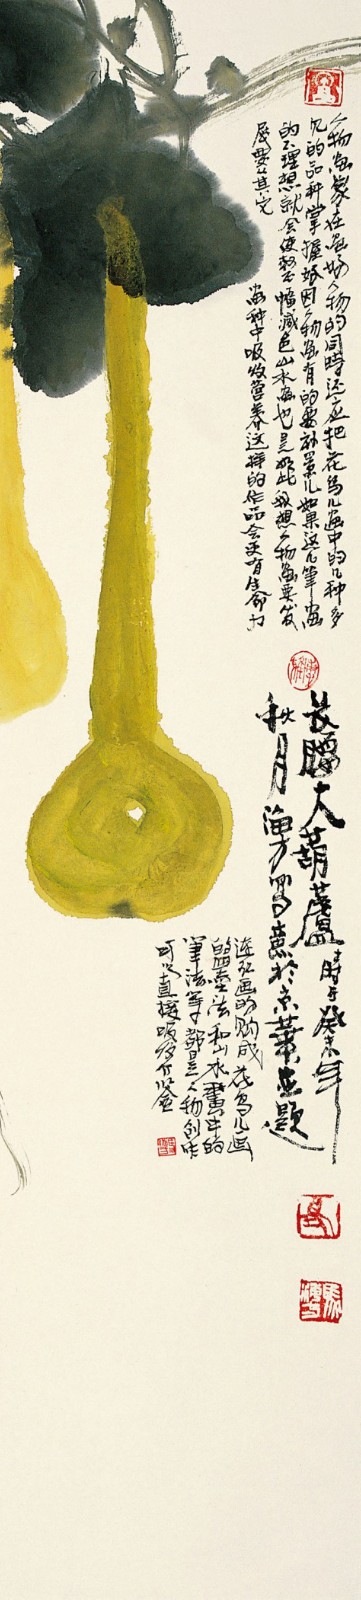 人物画家在画好人物的同时还应把花鸟儿画中的几种多
见的品种掌握好因人物画有的要补景儿如果这几笔画
的不理想就会使整幅减色山水画也是如此我想人物画要发
展要从其它
画种中吸收营养这样的作品会更有生命力
长腰大葫芦时于癸未年
秋月海方写意于京华并题
连环画的构成花鸟儿画
的晕染法和山水画中的
笔法等都是人物创作
可以直接吸收介鉴